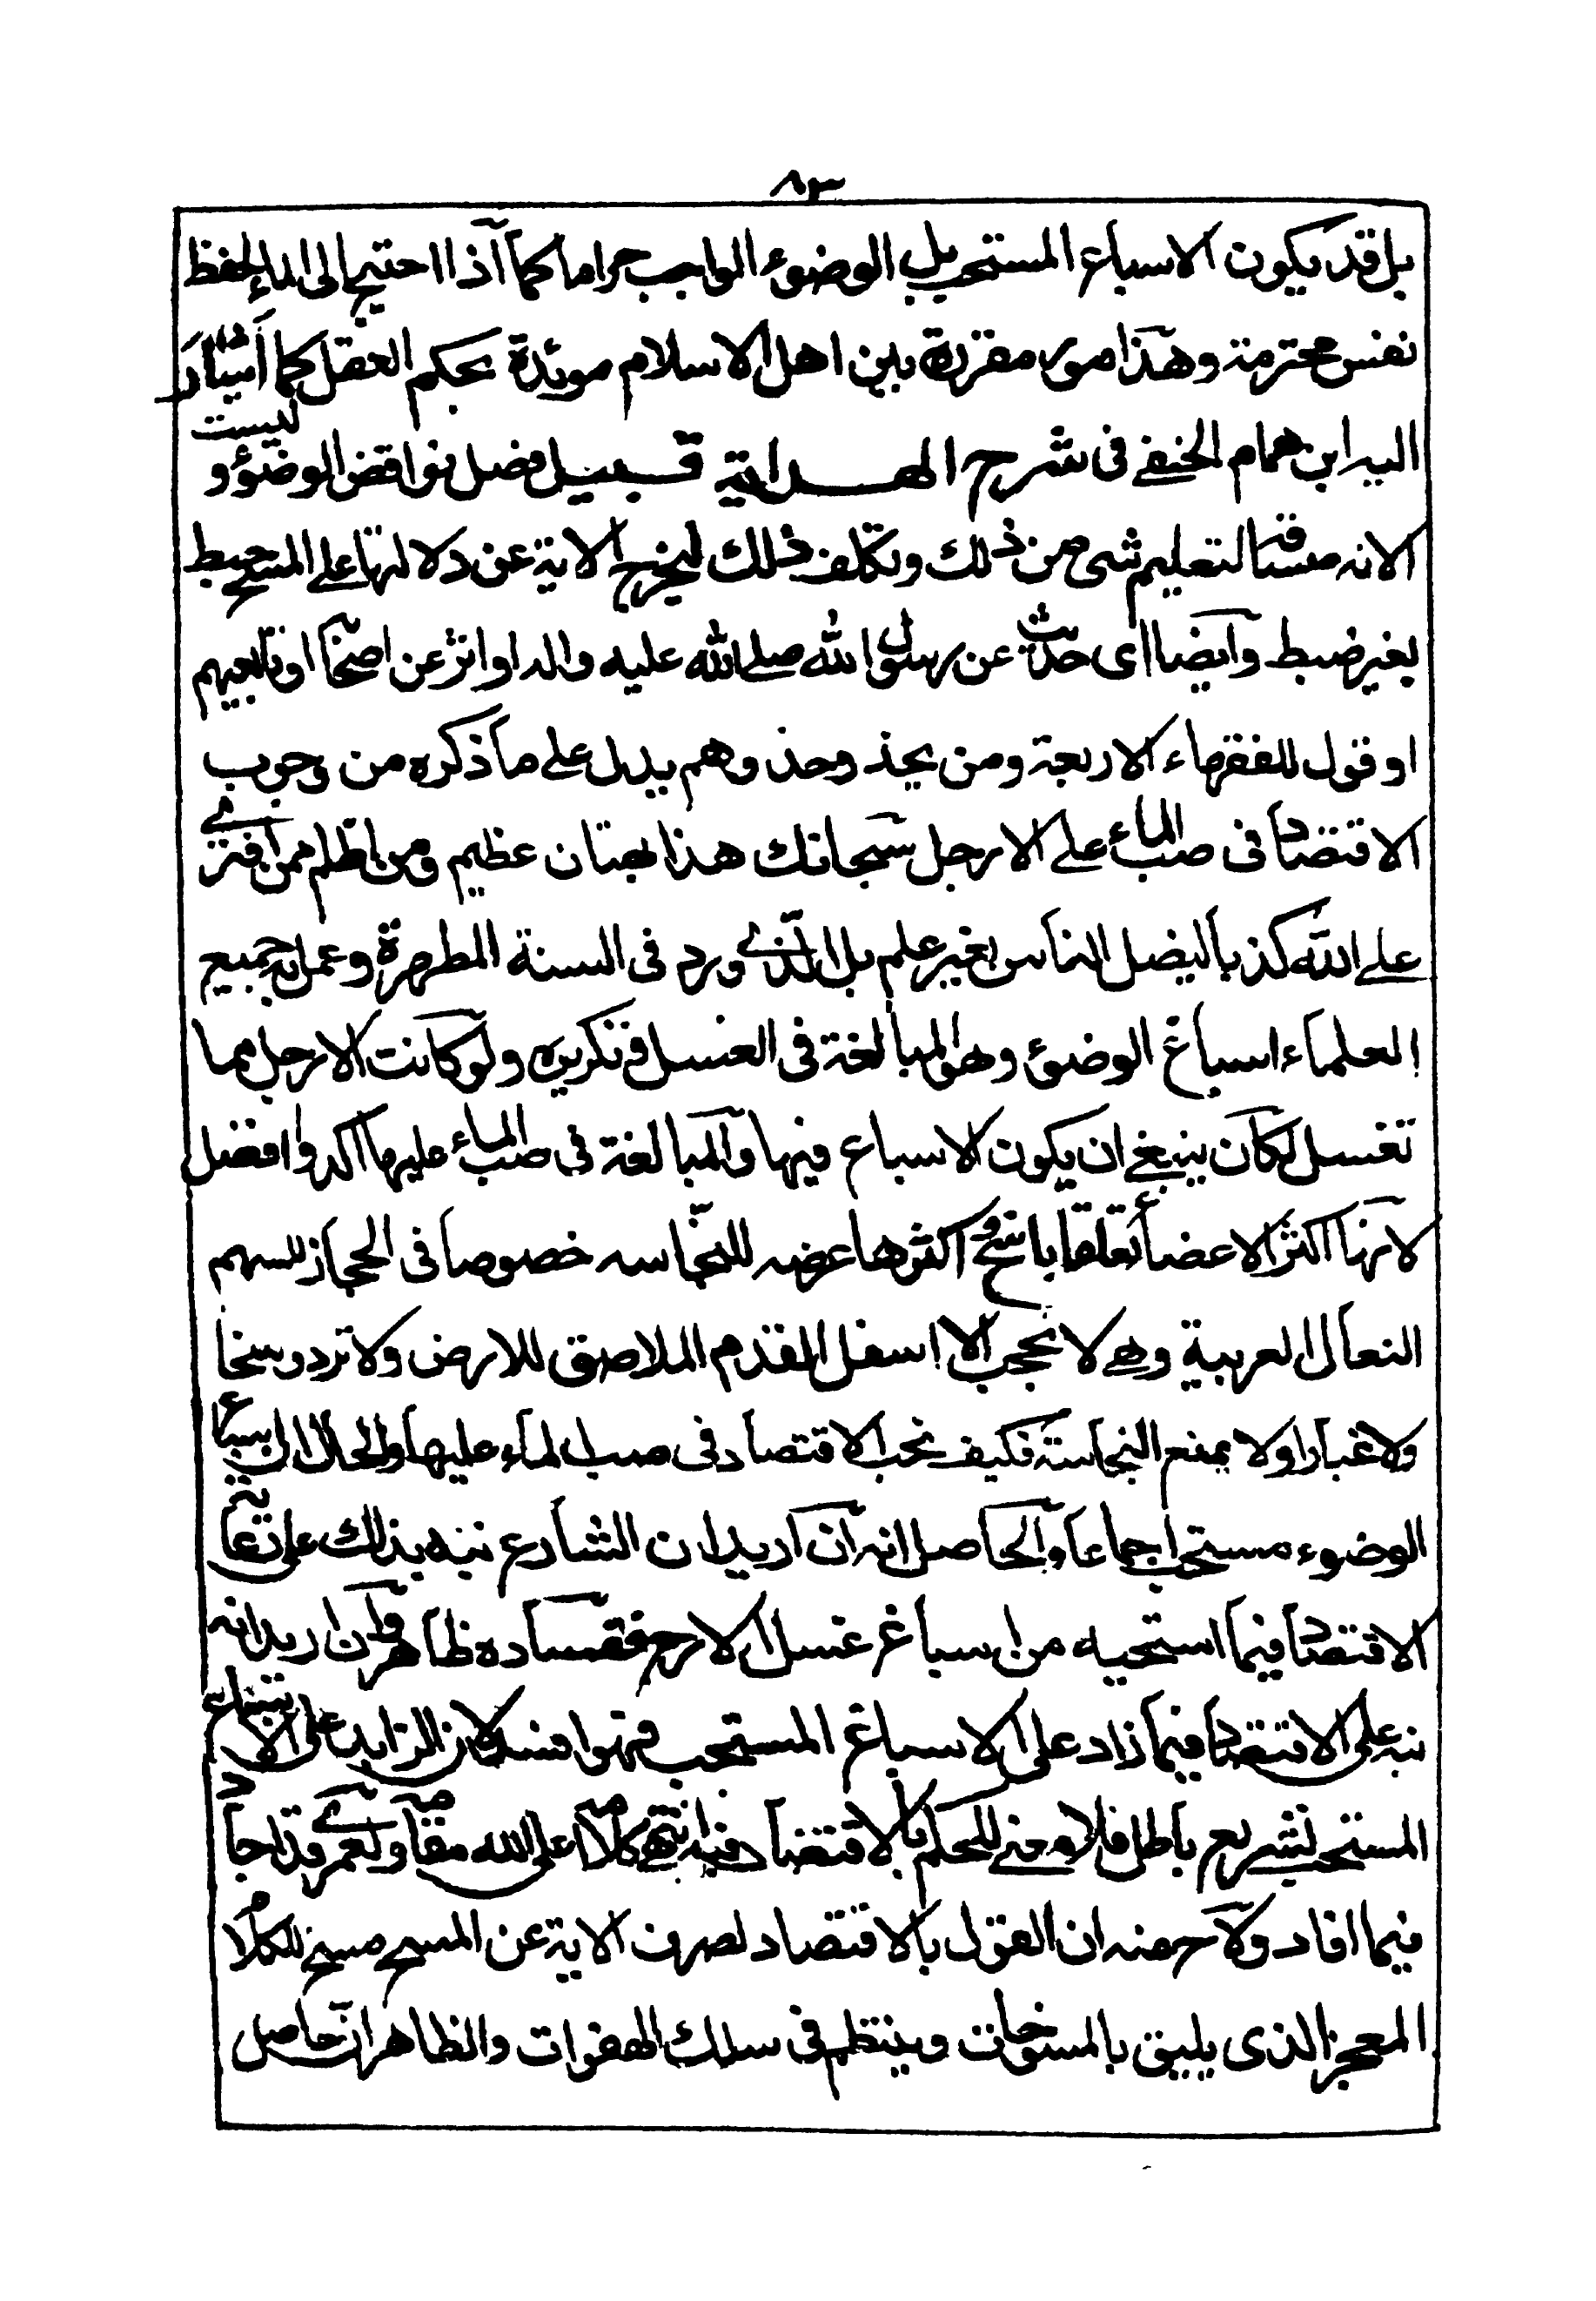 ٨٣
بل قد يكون الاسباغ المستحب بل الوضوء الواجب حراما كما آذا احتيج الى الماء لحفظ
نفس محترمة وهذا امور مقررة بين اهل الاسلام مويدة بحكم العقل كما أشار
اليه ابن همام الحنفے فى شرح الهداية قبيل فصل نواقض الوضوء و ليست
الانه مسقة لتعليم شئ من ذلك وتكلف ذلك ليخرج الاية عن دلالتها على المسح خبط
بغير ضبط وآيضا اى حديث عن رسول الله صلے الله عليه واله او اثر عن اصحابه او تابعيهم
او قول للفقهاء الاربعة ومن يحذ وحذوهم يدل على ما ذكره من وجوب
الاقتصاد فى صب الماء على الارجل سبحانك هذا بهتان عظيم ومن اظلم ممن افترے
علے الله كذبا ليضل الناس بغير علم بل الذے ورد فى السنة المطهرة وعمل به جميع
العلماء اسباغ الوضوء وهو المبالغة فى الغسل وتكريره ولو كانت الارجل مما
تغسل لكان ينبغے ان يكون الاسباغ فيها والمبالغة فى صب الماء عليها اكد وافضل
لانها اكثر الاعضاء تعلقا باوسخ و اكثرها عرضه للنجاسه خصوصا فى الحجاز للبسهم
النعال العربية وهے لا تحجب الا اسفل القدم الملاصق للارض ولا ترد وسخا
ولا غبارا ولا يمنع النجاسة فكيف يجب الاقتصاد فى صب الماء عليها والحال ان اسباغ
الوضوء مستحب اجماعا والحاصل انه ان اريد ان الشارع نبه بذلك على رعاية
الاقتصاد فيما استحبه من اسباغ غسل الارجل ففساده ظاهر وان اريد انه
نبه على الاقتصاد فيما زاد على الاسباغ المستحب فهو افسد لان الزايد على الاسباغ
المستحب تشريع باطل فلا معنے للحكم بالاقتصاد فيه انتهى كلامه اعلى الله مقامه ولعمرے قد اجاد
فيما افاد ولاح منه ان القول بالاقتصاد لصرف الاية عن المسح مسخ للكلام
المعجز الذى يليق بالمسوخات وينتظم فى سلك الهفوات والظاهر ان حاصل